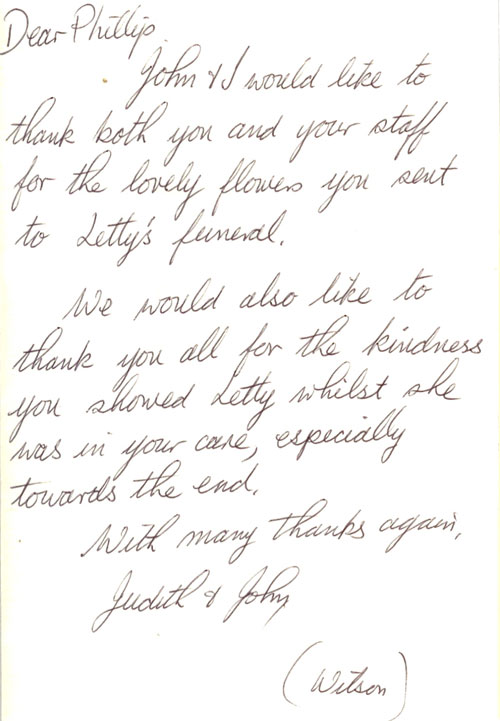 Dear Phillip,
John & I would like to
thank both you and your staff
for the lovely flowers you sent
to Letty's funeral.
We would also like to
thank you all for the kindness
you showed Letty whilst she
was in your care, especially
towards the end.
With many thanks again,
Judith & John
(Wilson)